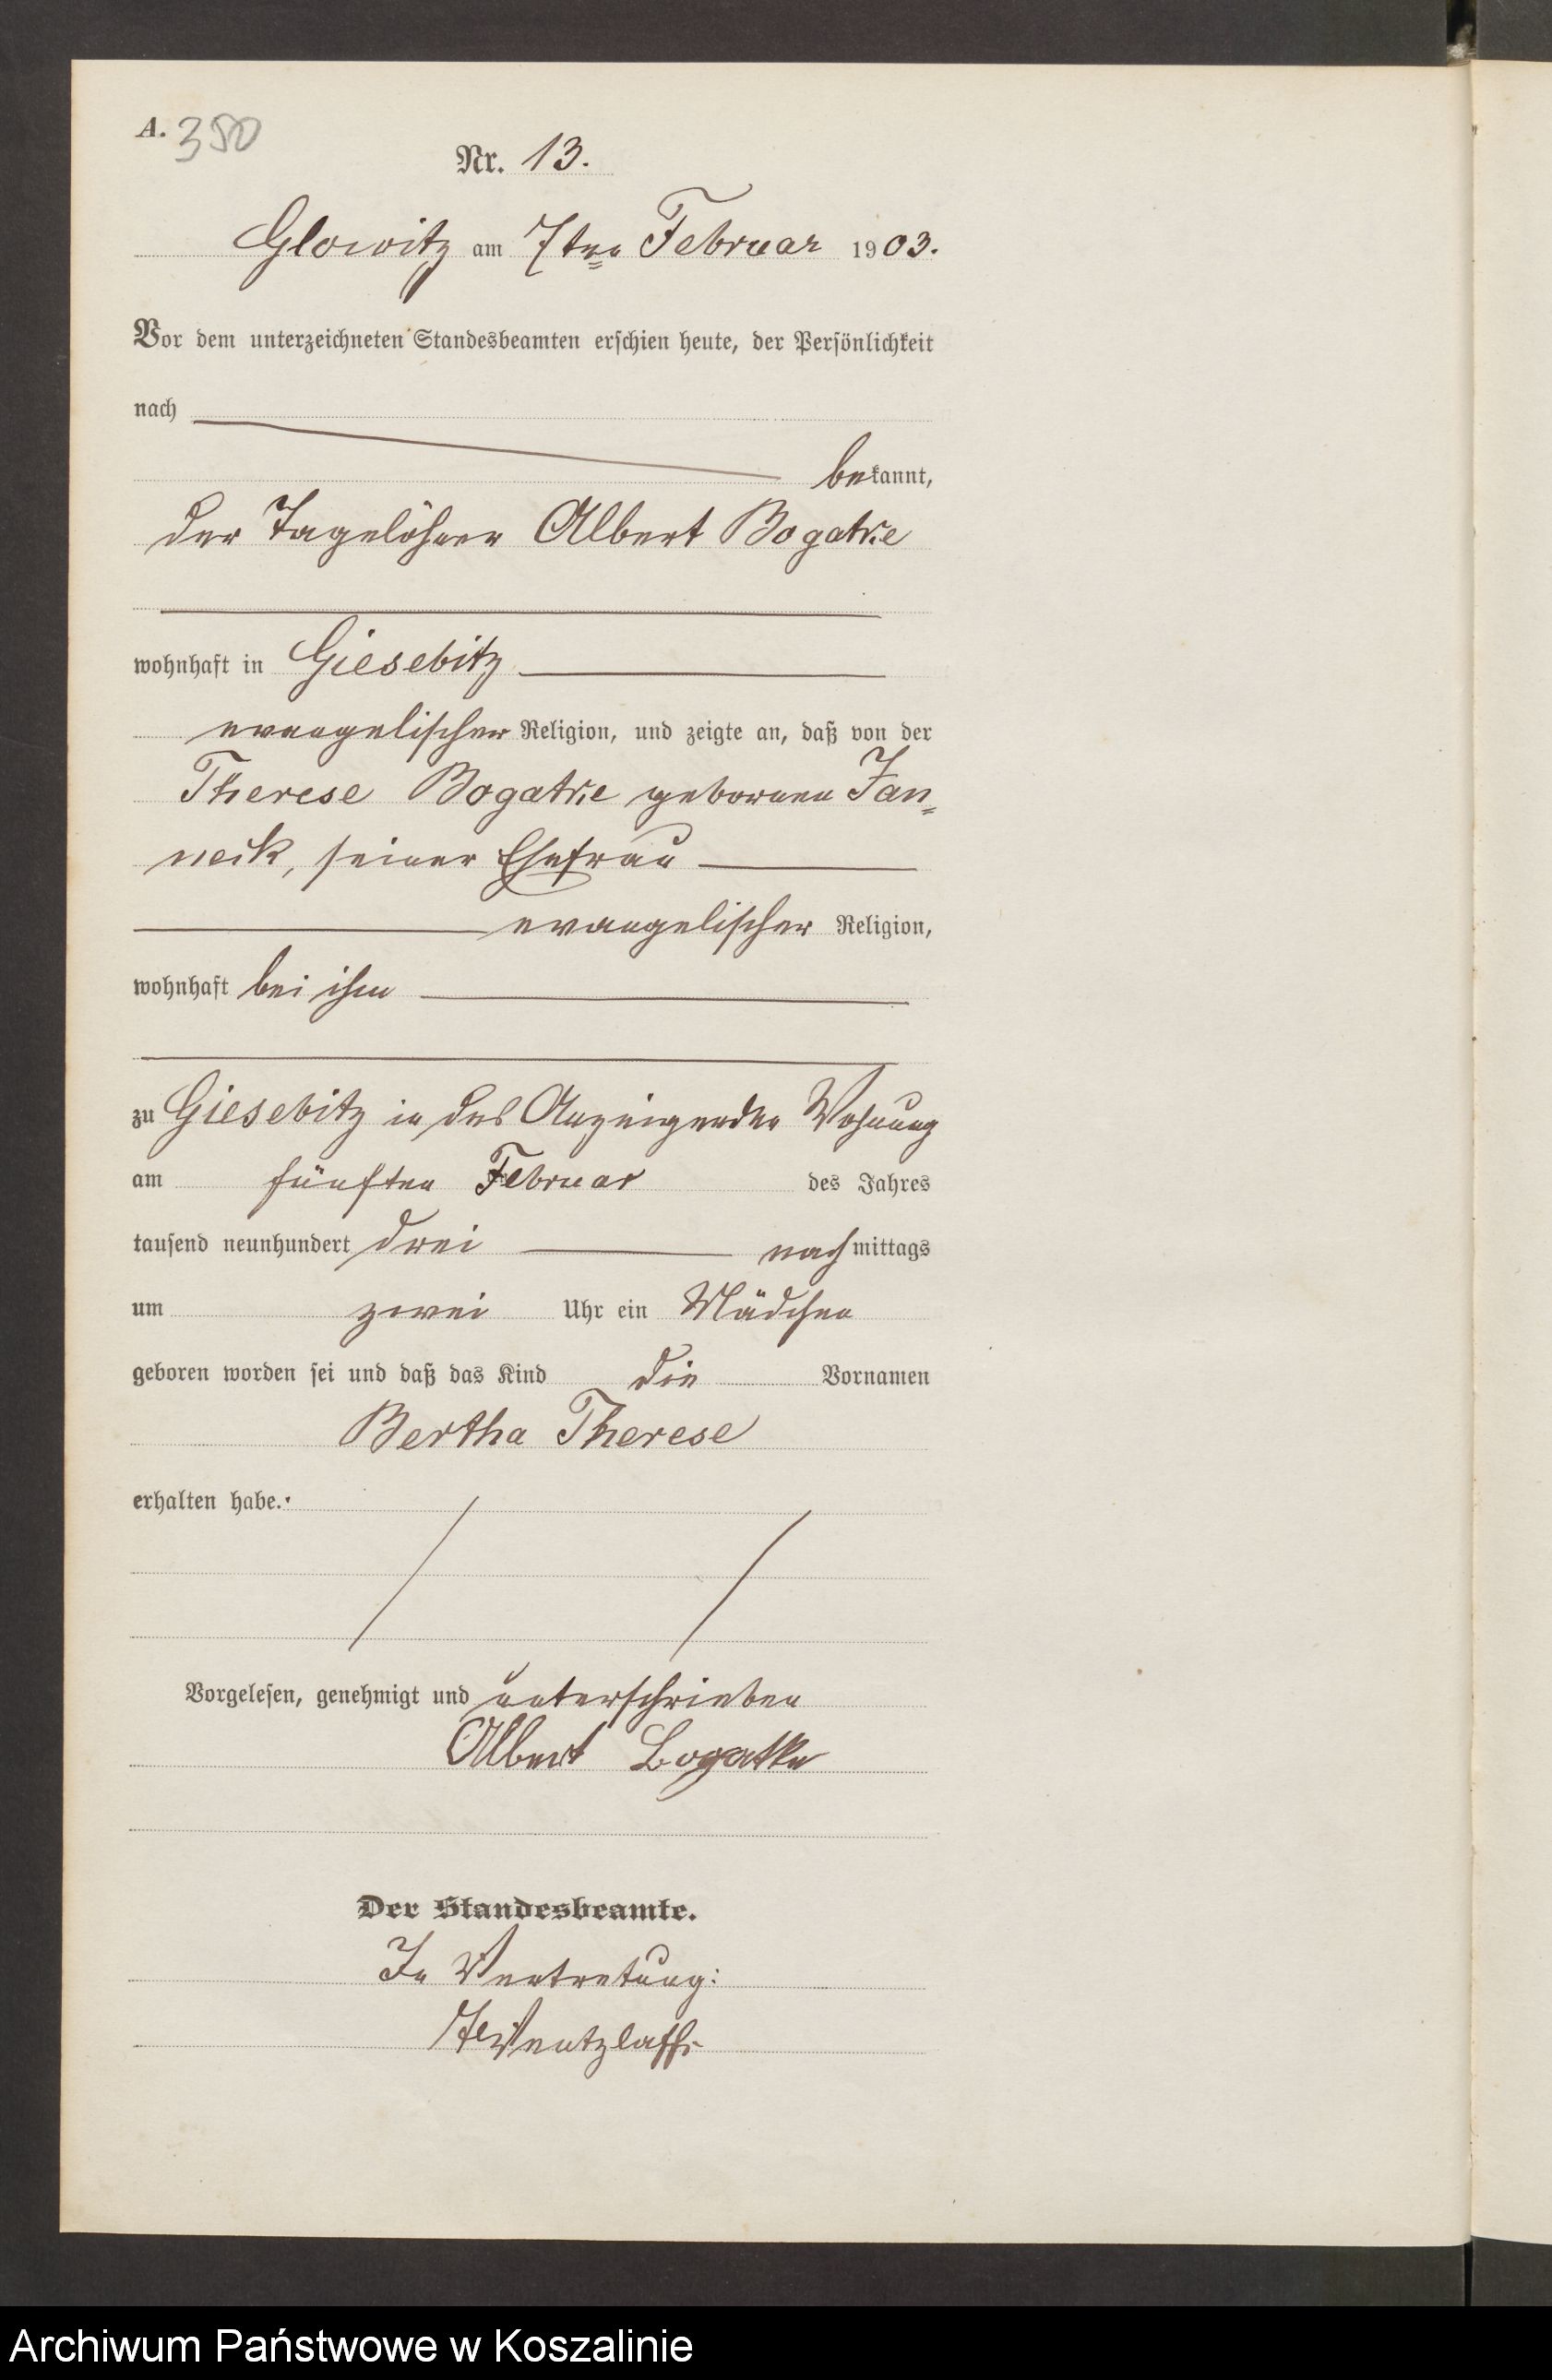 A. 380
Nr. 13.
Glowitz am 7ten Februar 1903.
Vor dem unterzeichneten Standesbeamten erschien heute, der Persönlichkeit
nach
bekannt,
der Tagelöhner Albert Bogatke
wohnhaft in Giesebitz
evangelischer Religion, und zeigte an, daß von der
Therese Bogatke geborenen Jan=
neck, seiner Ehefrau
evangelischer Religion,
wohnhaft bei ihm
zu Giesebitz in des Anzeigenden Wohnung
am fünften Februar des Jahres
tausend neunhundert drei nachmittags
um zwei Uhr ein Mädchen
geboren worden sei und daß das Kind die Vornamen
Bertha Therese
erhalten habe.
Vorgelesen, genehmigt und unterschrieben
Albert Bogatke
Der Standesbeamte.
In Vertretung:
Wentzlaff
Archiwum Państwowe w Koszalinie